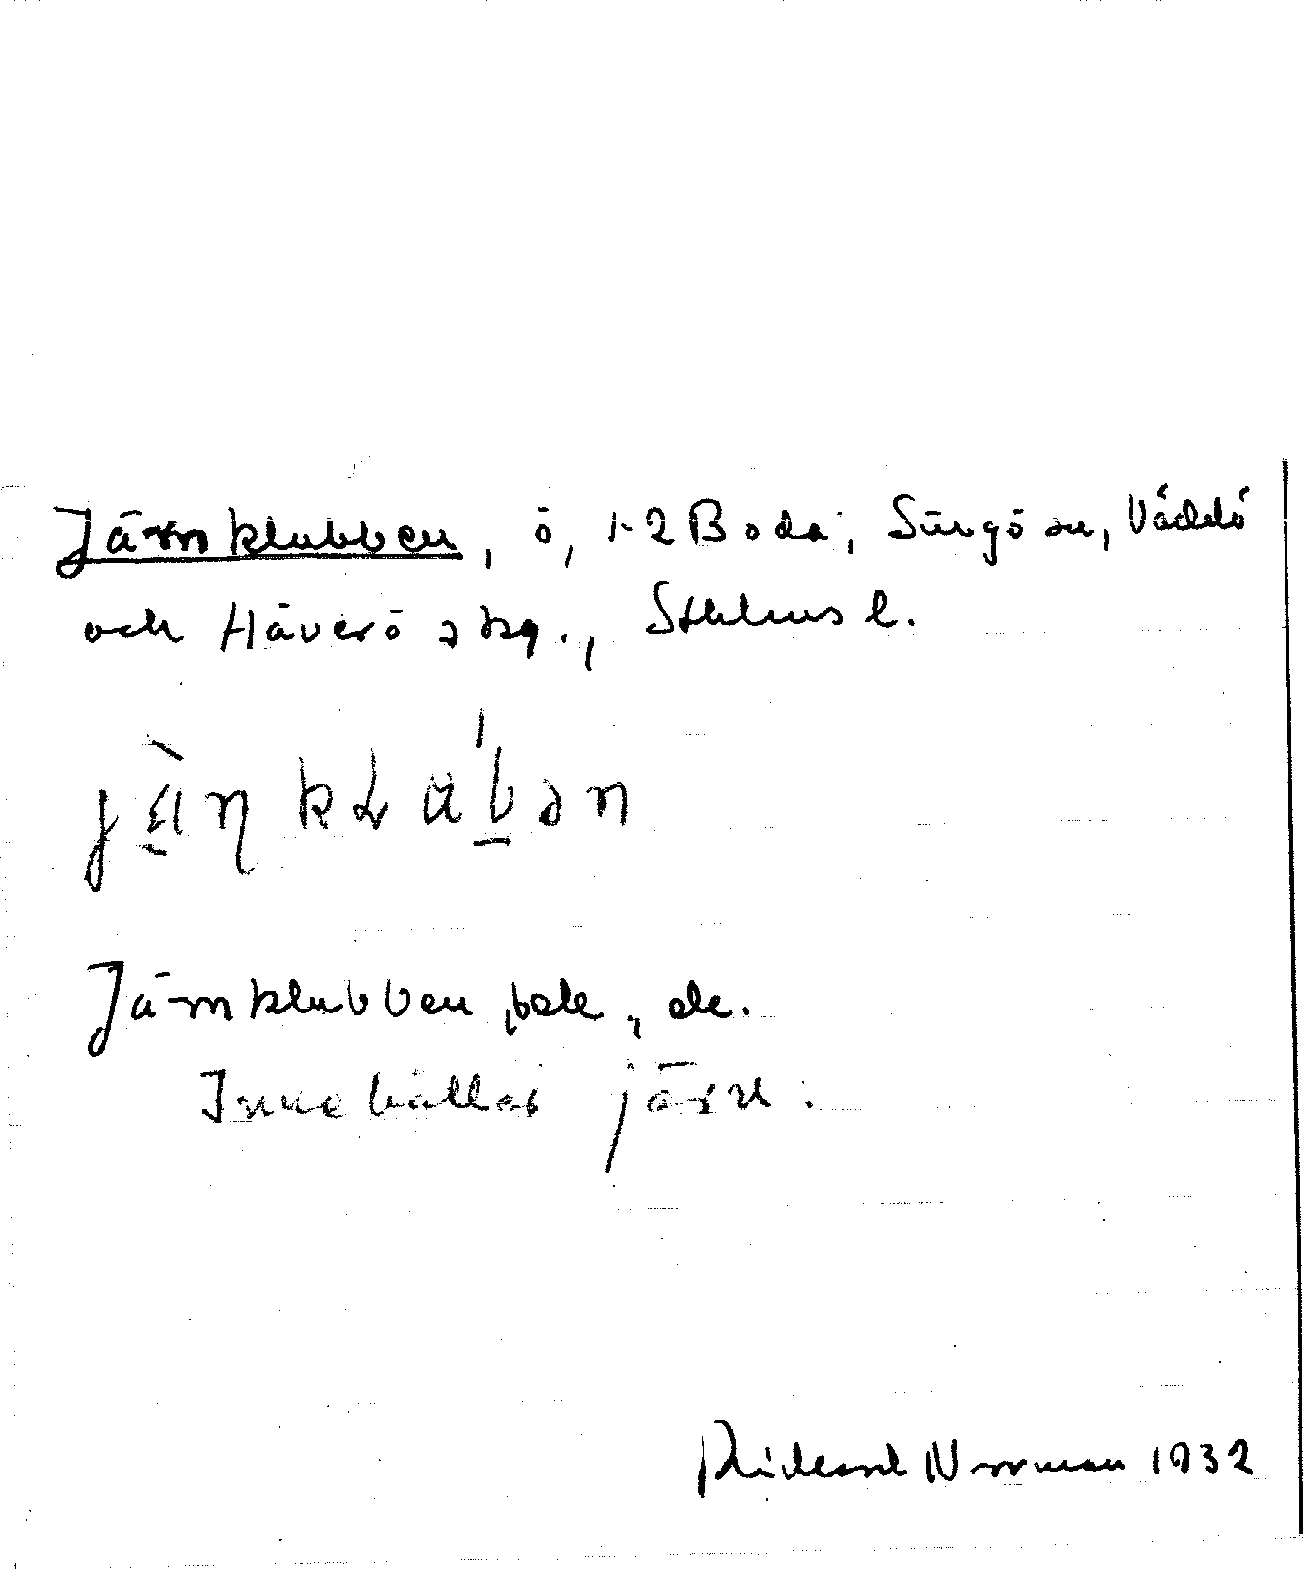 Järnklubben, ö, 1-2 Boda; Singö sn, Väddö
och Häverö skg., Sthlms l.
Järnklubben, ek.
Innehåller järn.
Rickard Norrman 1932